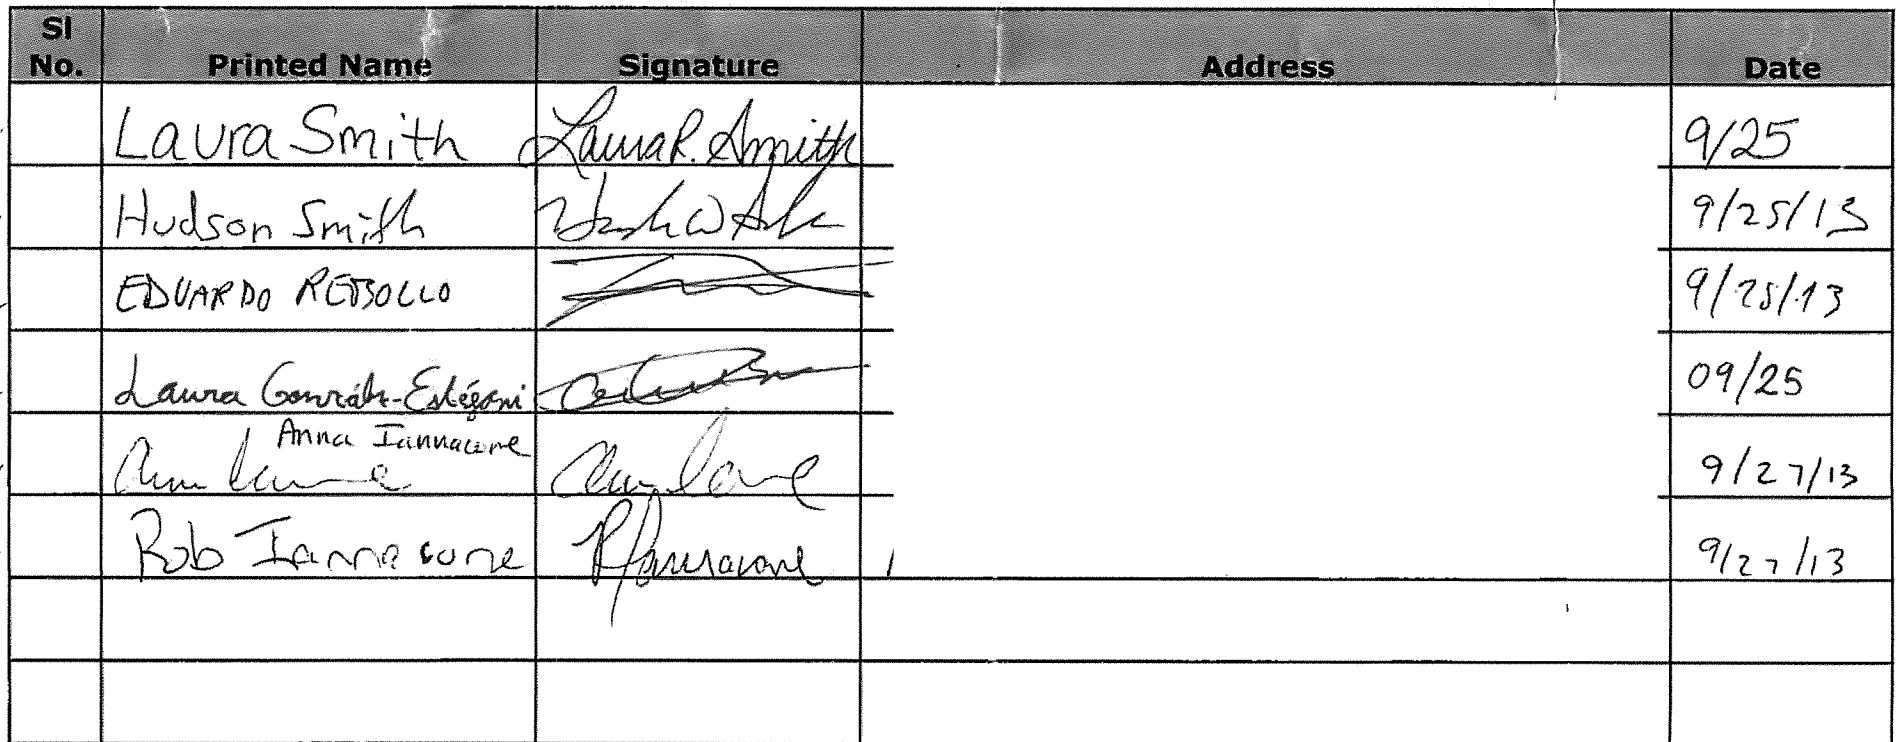 Sl No. Printed Name Signature Address Date
Laura Smith Laura R. Smith 9/25
Hudson Smith 9/25/13
EDUARDO REBOLLO 9/25/13
Laura 09/25
Anna Iannacone 9/27/13
Rob Iannacone R Iannacone 9/27/13